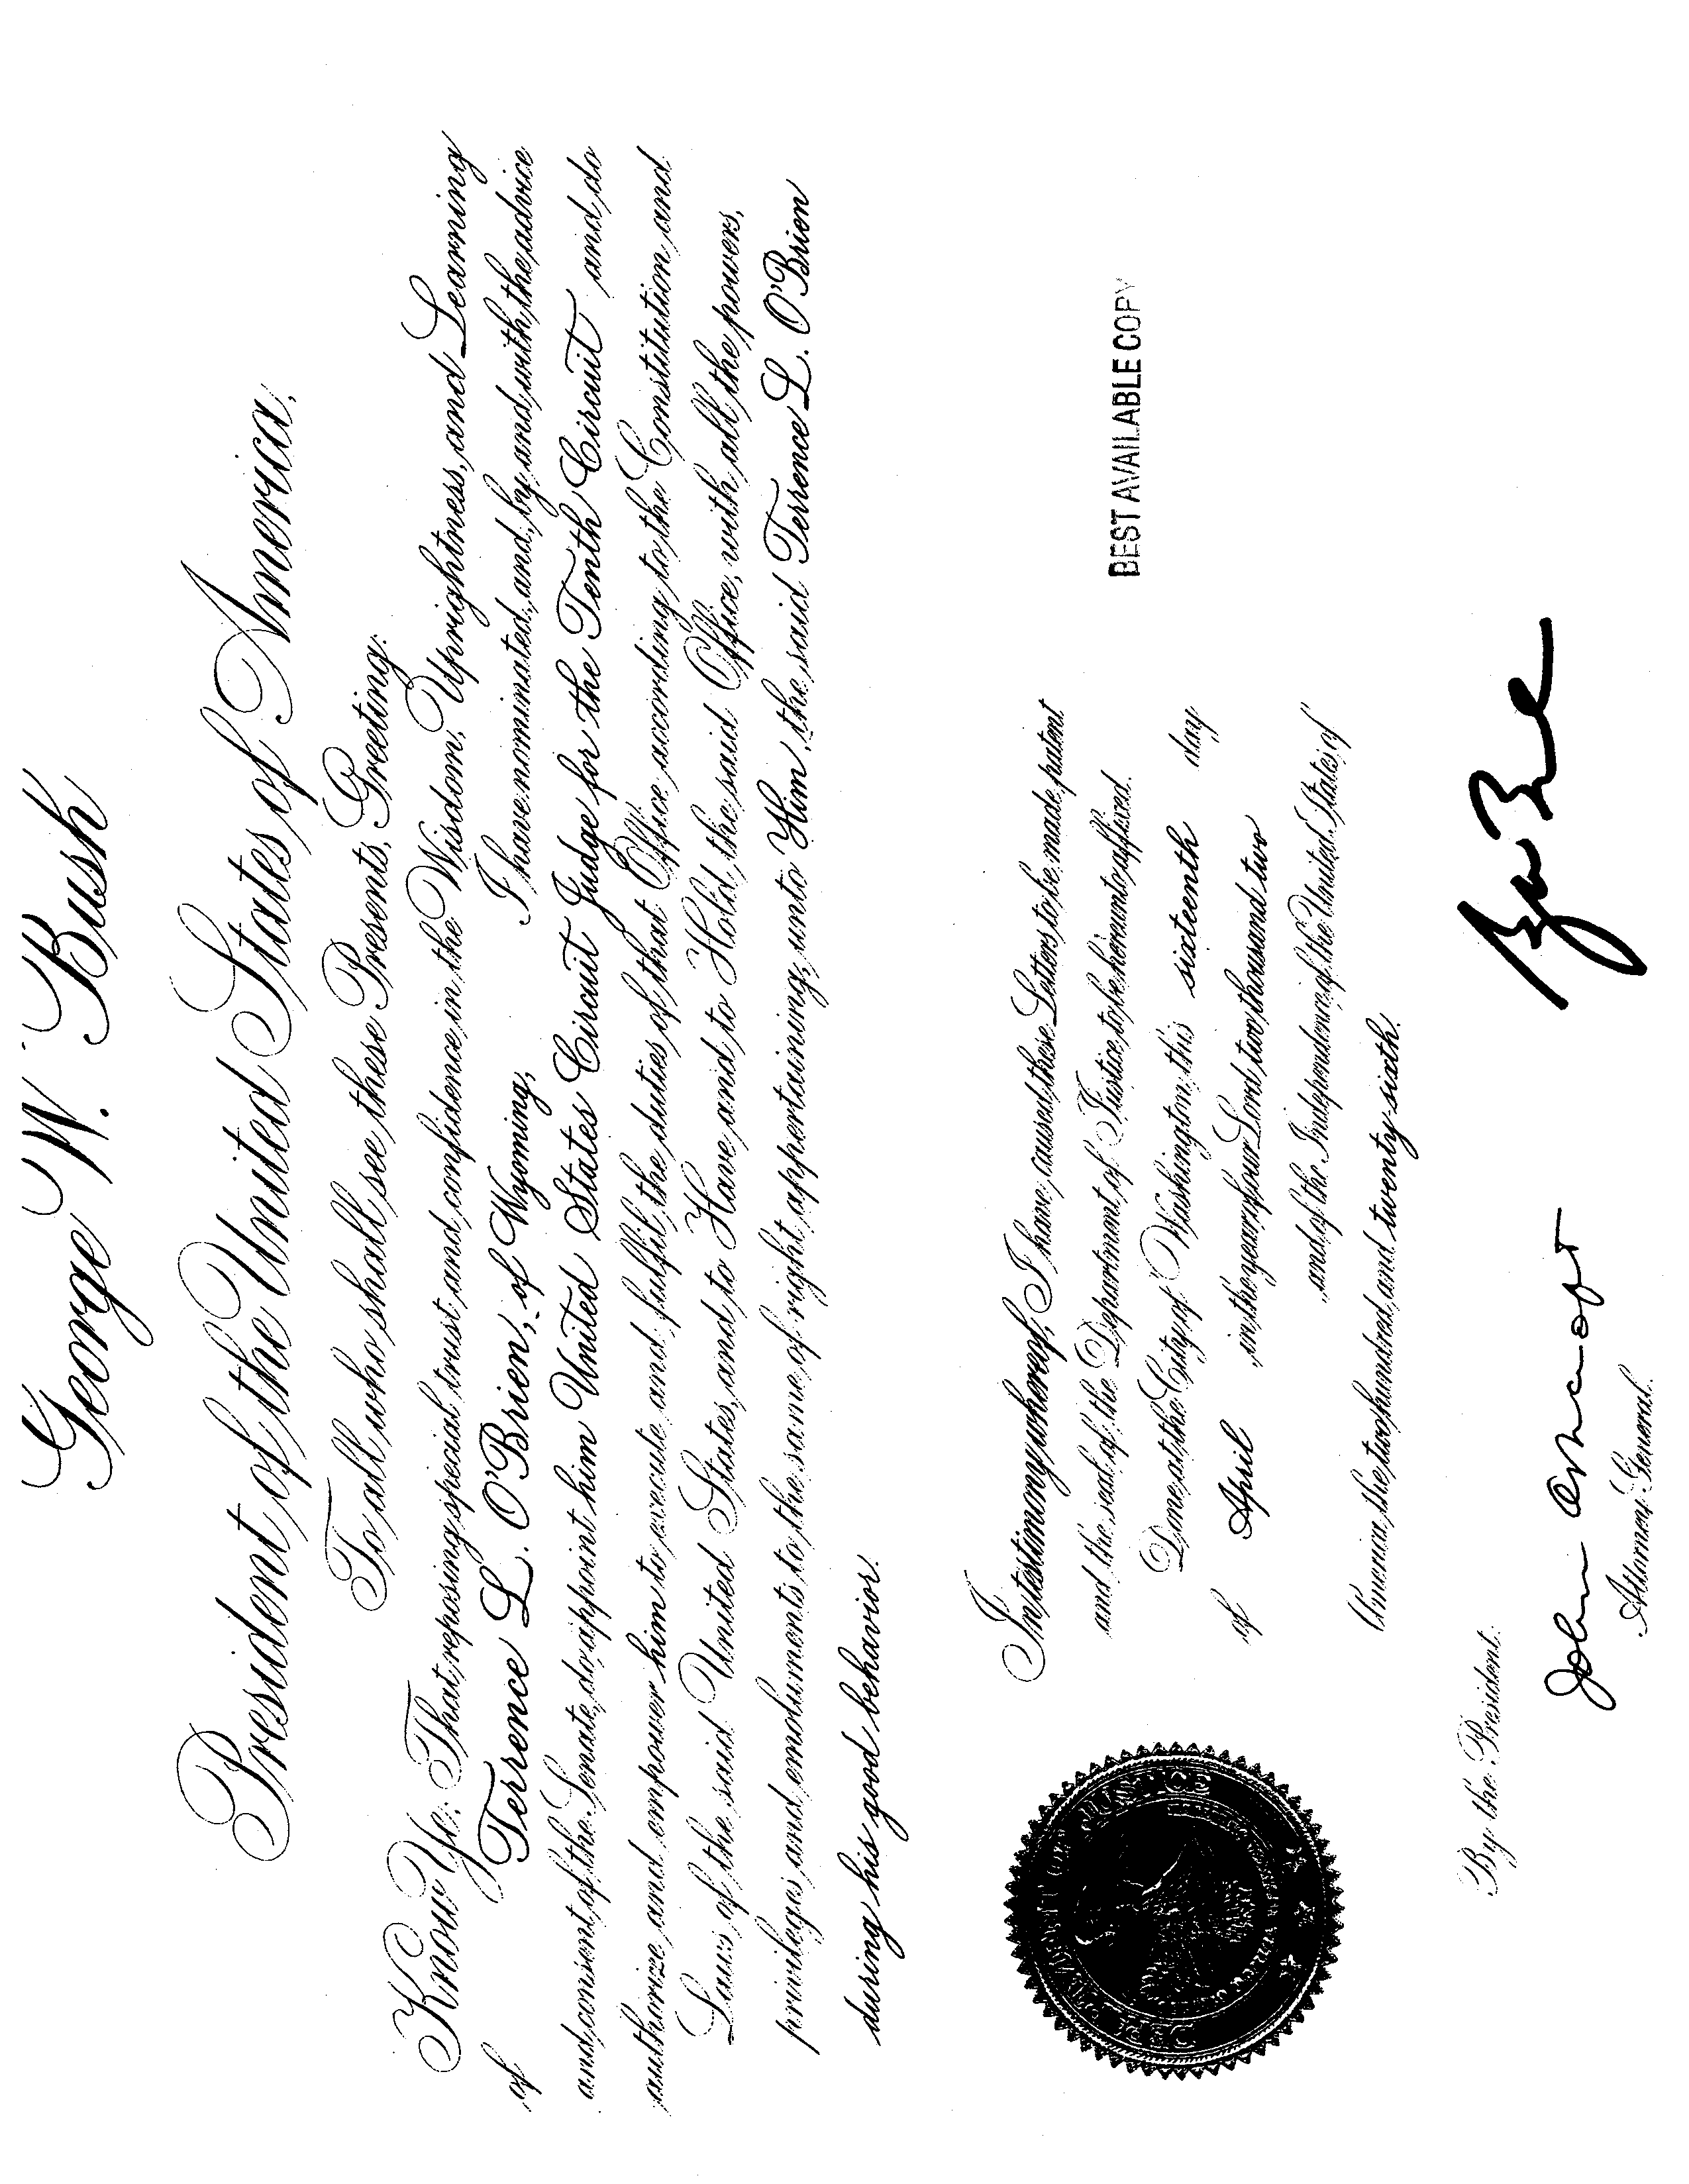 George W. Bush
President of the United States of America,
To all who shall see these Presents, Greeting:
Know Ye: That reposing special trust and confidence in the Wisdom, Uprightness, and Learning
of Terrence L. O'Brien, of Wyoming, I have nominated, and, by and with the advice
and consent of the Senate, do appoint him United States Circuit Judge for the Tenth Circuit and do
authorize and empower him to execute and fulfil the duties of that Office according to the Constitution and
Laws of the said United States, and to Have and to Hold the said Office, with all the powers,
privileges, and emoluments to the same of right appertaining, unto Him, the said Terrence L. O'Brien
during his good behavior.
In testimony whereof, I have caused these Letters to be made patent
and the seal of the Department of Justice to be hereunto affixed.
Done at the City of Washington, this sixteenth day
of April in the year of our Lord two thousand two
and of the Independence of the United States of
America the two hundred and twenty sixth.
BEST AVAILABLE COPY
By the President:
John Ashcroft
Attorney General.
DEPARTMENT OF JUSTICE